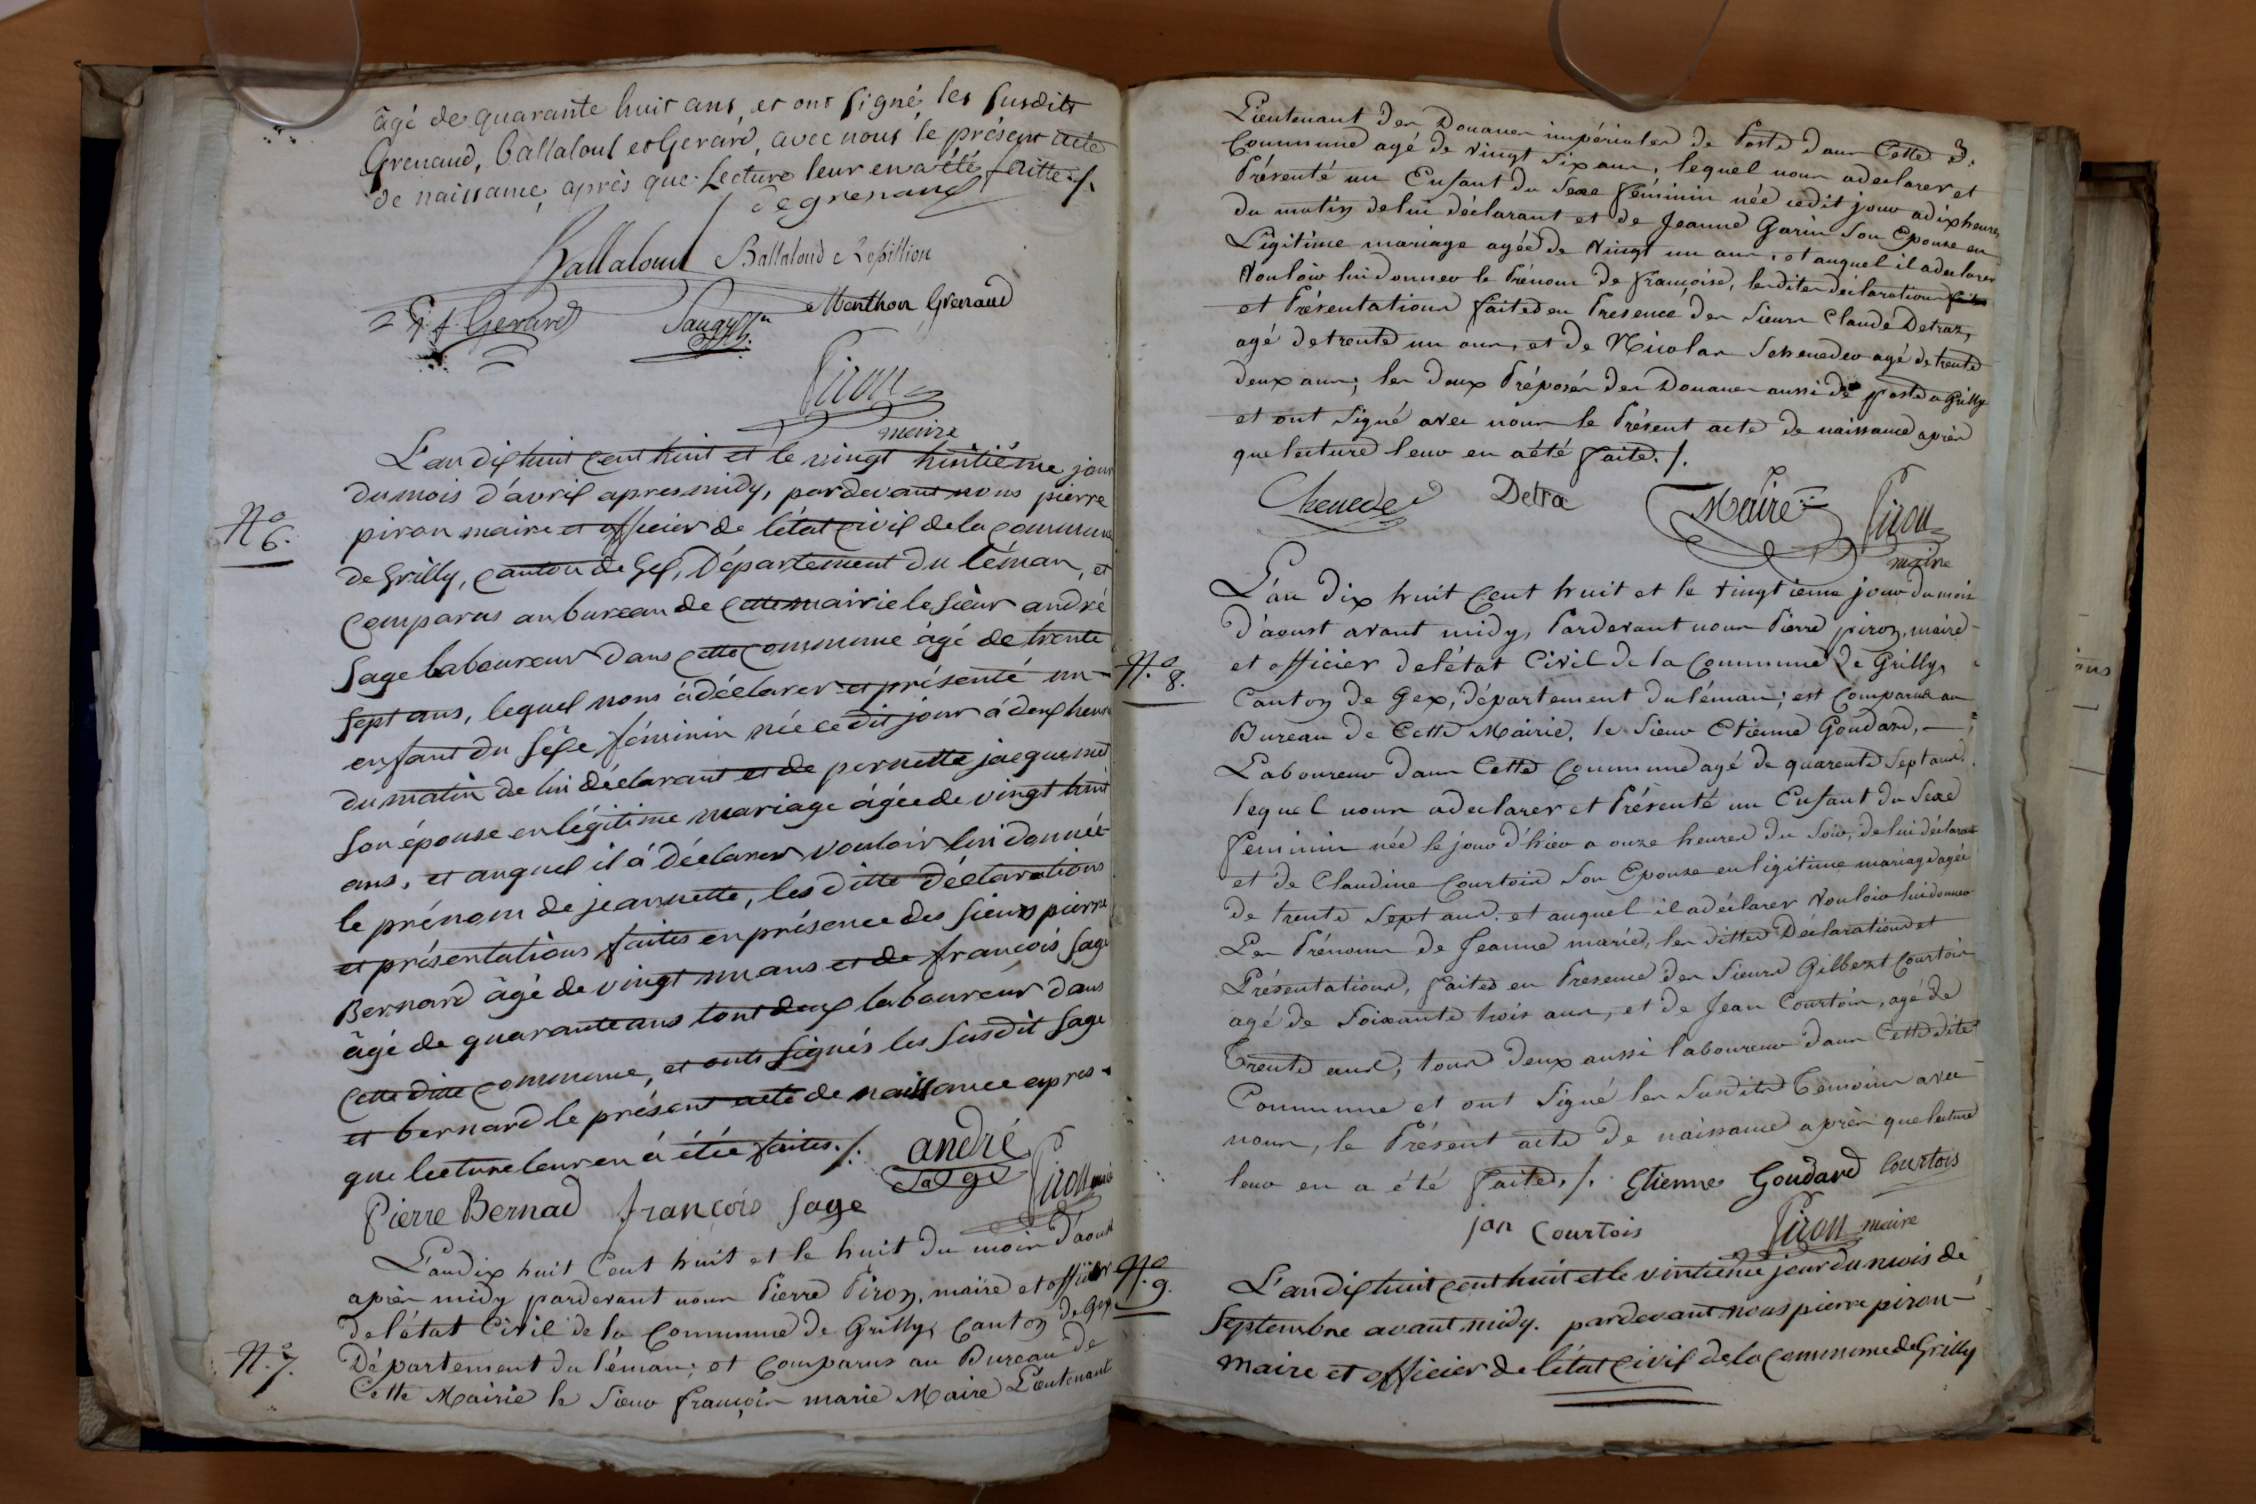 âgé de quarante huit ans, et ont signé, les susdits
Grenaud, Ballaloud et Gerard, avec nous le présent acte
de naissance, après que Lecture leur en a été faitte ./.
degrenaud
Ballaloud Ballaloud Repillion
Gerard Menthon Grenaud
Piron
maire
L'an dix huit cent huit et le vingt huitième jour
du mois d'avril apres midy, pardevant nous pierre
N.o 6.
piron maire et officier de l'état civil de la commune
de Grilly, canton de Gex, Département du Léman, et
comparus au bureau de cette mairie le sieur andré
sage laboureur dans cette commune âgé de trente
sept ans, lequel nous à déclarer et présenté un
enfant du sexe féminin née ce dit jour à deux heures
du matin de lui déclarant et de pernette jacquemet
son épouse en légitime mariage âgée de vingt huit
ans, et auquel il à déclarer vouloir lui donnée
le prénom de jeannette, les ditte déclarations
et présentations faites en présence des sieurs pierre
Bernard âgé de vingt un ans et de francois sage
âgé de quarante ans tout deux laboureur dans
cette ditte commune, et onts signés les susdit sage
et bernard le présent acte de naissance apres
que lecture leur en à étée faites ./. andré
sage
Piron maire
Pierre Bernad françois sage
L'an dix huit Cent huit et le huit du mois d'aoust
après midy pardevant nous Pierre Piron, maire et officier
de l'état Civil de la Commune de Grilly, Canton de Gex
N.o 7.
Département du Léman; et comparus au Bureau de
Cette Mairie le Sieur françois marie Maire Lieutenant
3.
Lieutenant des Douanes impériales de Poste dans Cette
Commune agé de vingt six ans, lequel nous a declarer et
Présenté un Enfant du Sexe féminin née cedit jour a dix heures
du matin de lui déclarant et de Jeanne Garin son Epouse en
Légitime mariage agée de vingt un ans, et auquel il a declarer
vouloir lui donner le Prénom de françoise, lesdites déclarations
et Présentations faites en Presence des Sieurs Claude Detraz,
agé de trente un ans, et de Nicolas Scheneder agé de trente
deux ans; les deux Préposés des Douanes aussi de poste a Grilly
et ont signé avec nous le Présent acte de naissance après
que lecture leur en a été faite ./.
Detra Maire Piron
maire
L'an dix huit Cent huit et le vingtieme jour du mois
d'aoust avant midy, Pardevant nous Pierre piron, maire
et officier de l'état Civil de la Commune de Grilly,
N.o 8.
Canton de Gex, département du léman; est Comparus au
Bureau de Cette Mairie, le Sieur Etienne Goudard, —
Laboureur dans Cette Commune agé de quarente Sept ans.
lequel nous a declarer et Présenté un Enfant du Sexe
féminin née le jour d'hier a onze heures du Soir, de lui déclarant
et de Claudine Courtois Son Epouse en légitime mariage agée
de trente Sept ans. et auquel il a déclarer Vouloir lui donner
Les Prénoms de Jeanne marie, les dittes Déclarations et
Présentations, faites en Presence des Sieurs Gilbert Courtois
agé de Soixante trois ans, et de Jean Courtois, agé de
Trente ans, tous deux aussi laboureur dans Cette dite
Commune et ont Signé les Susdits Temoins avec
nous, le Présent acte de naissance après que lecture
leur en a été faites ./. Etienne Goudard Courtois
jan Courtois Piron maire
N.o 9.
L'an dix huit cent huit et le vintieme jour du mois de
Septembre avant midy. pardevant nous pierre piron
maire et officier de l'état civil de la commune de Grilly